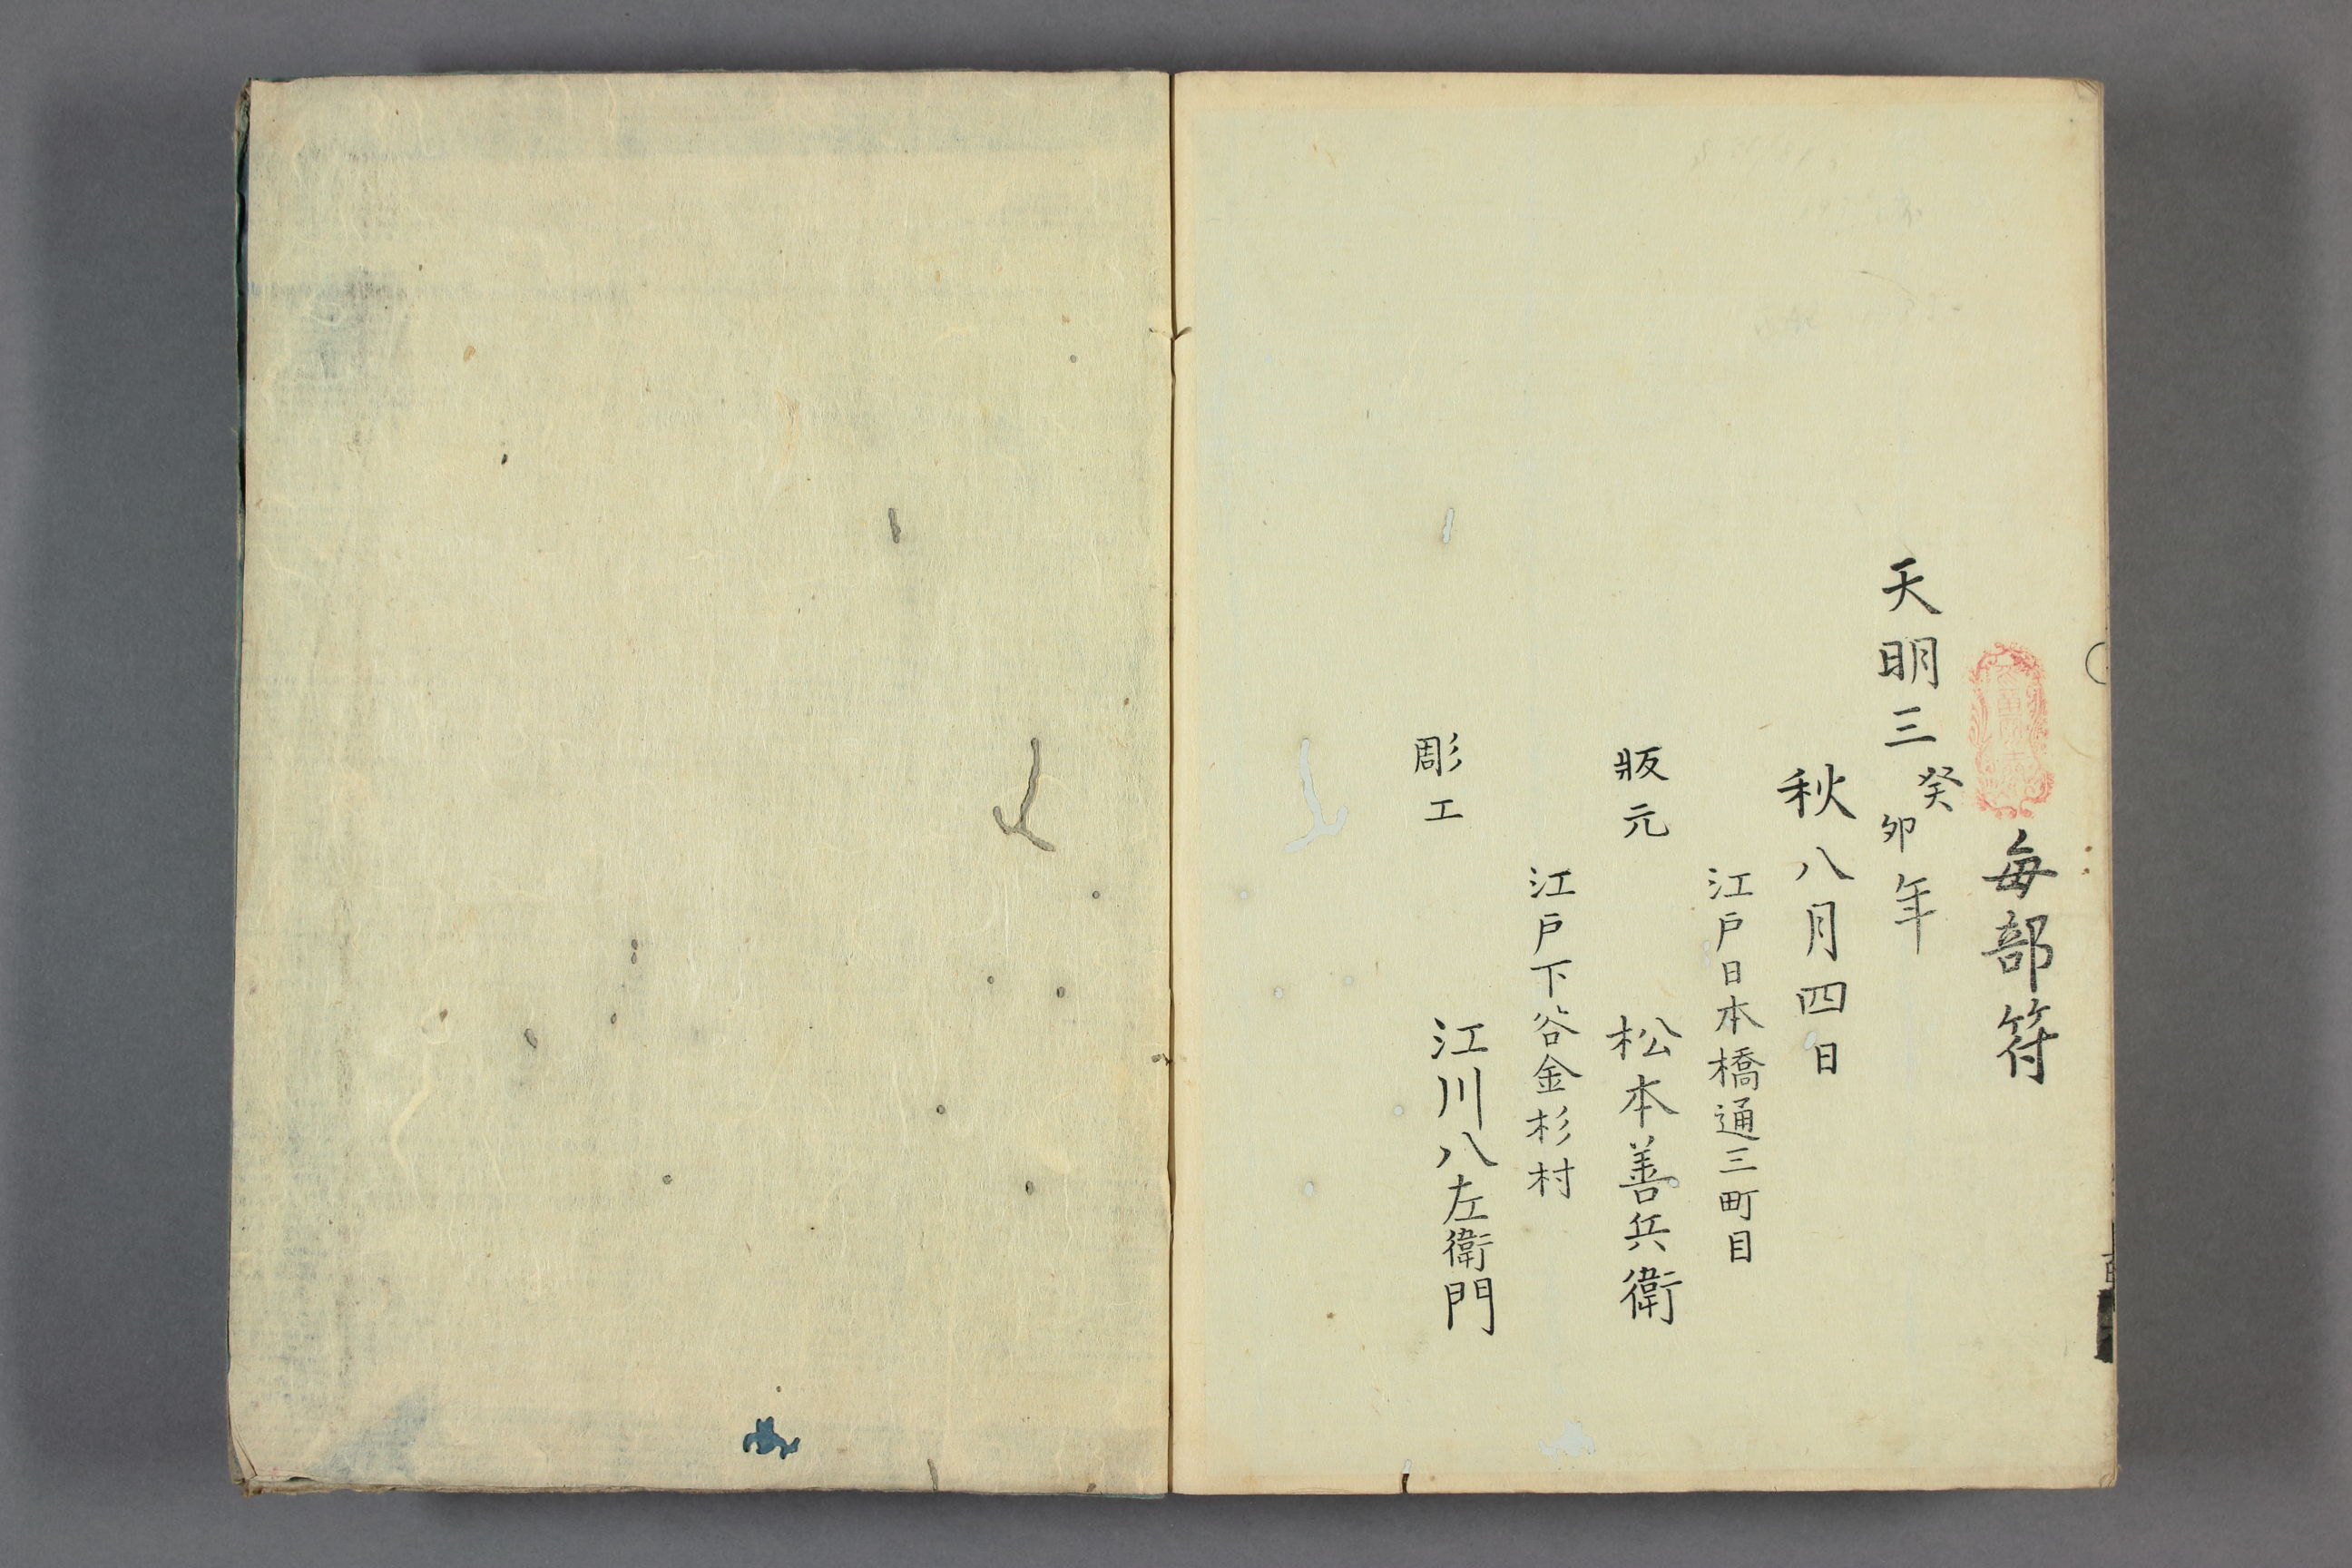 每部符
天明三癸卯年
秋八月四日
江戸日本橋通三町目
版元 松本善兵衛
江戸下谷金杉村
彫工 江川八左衛門